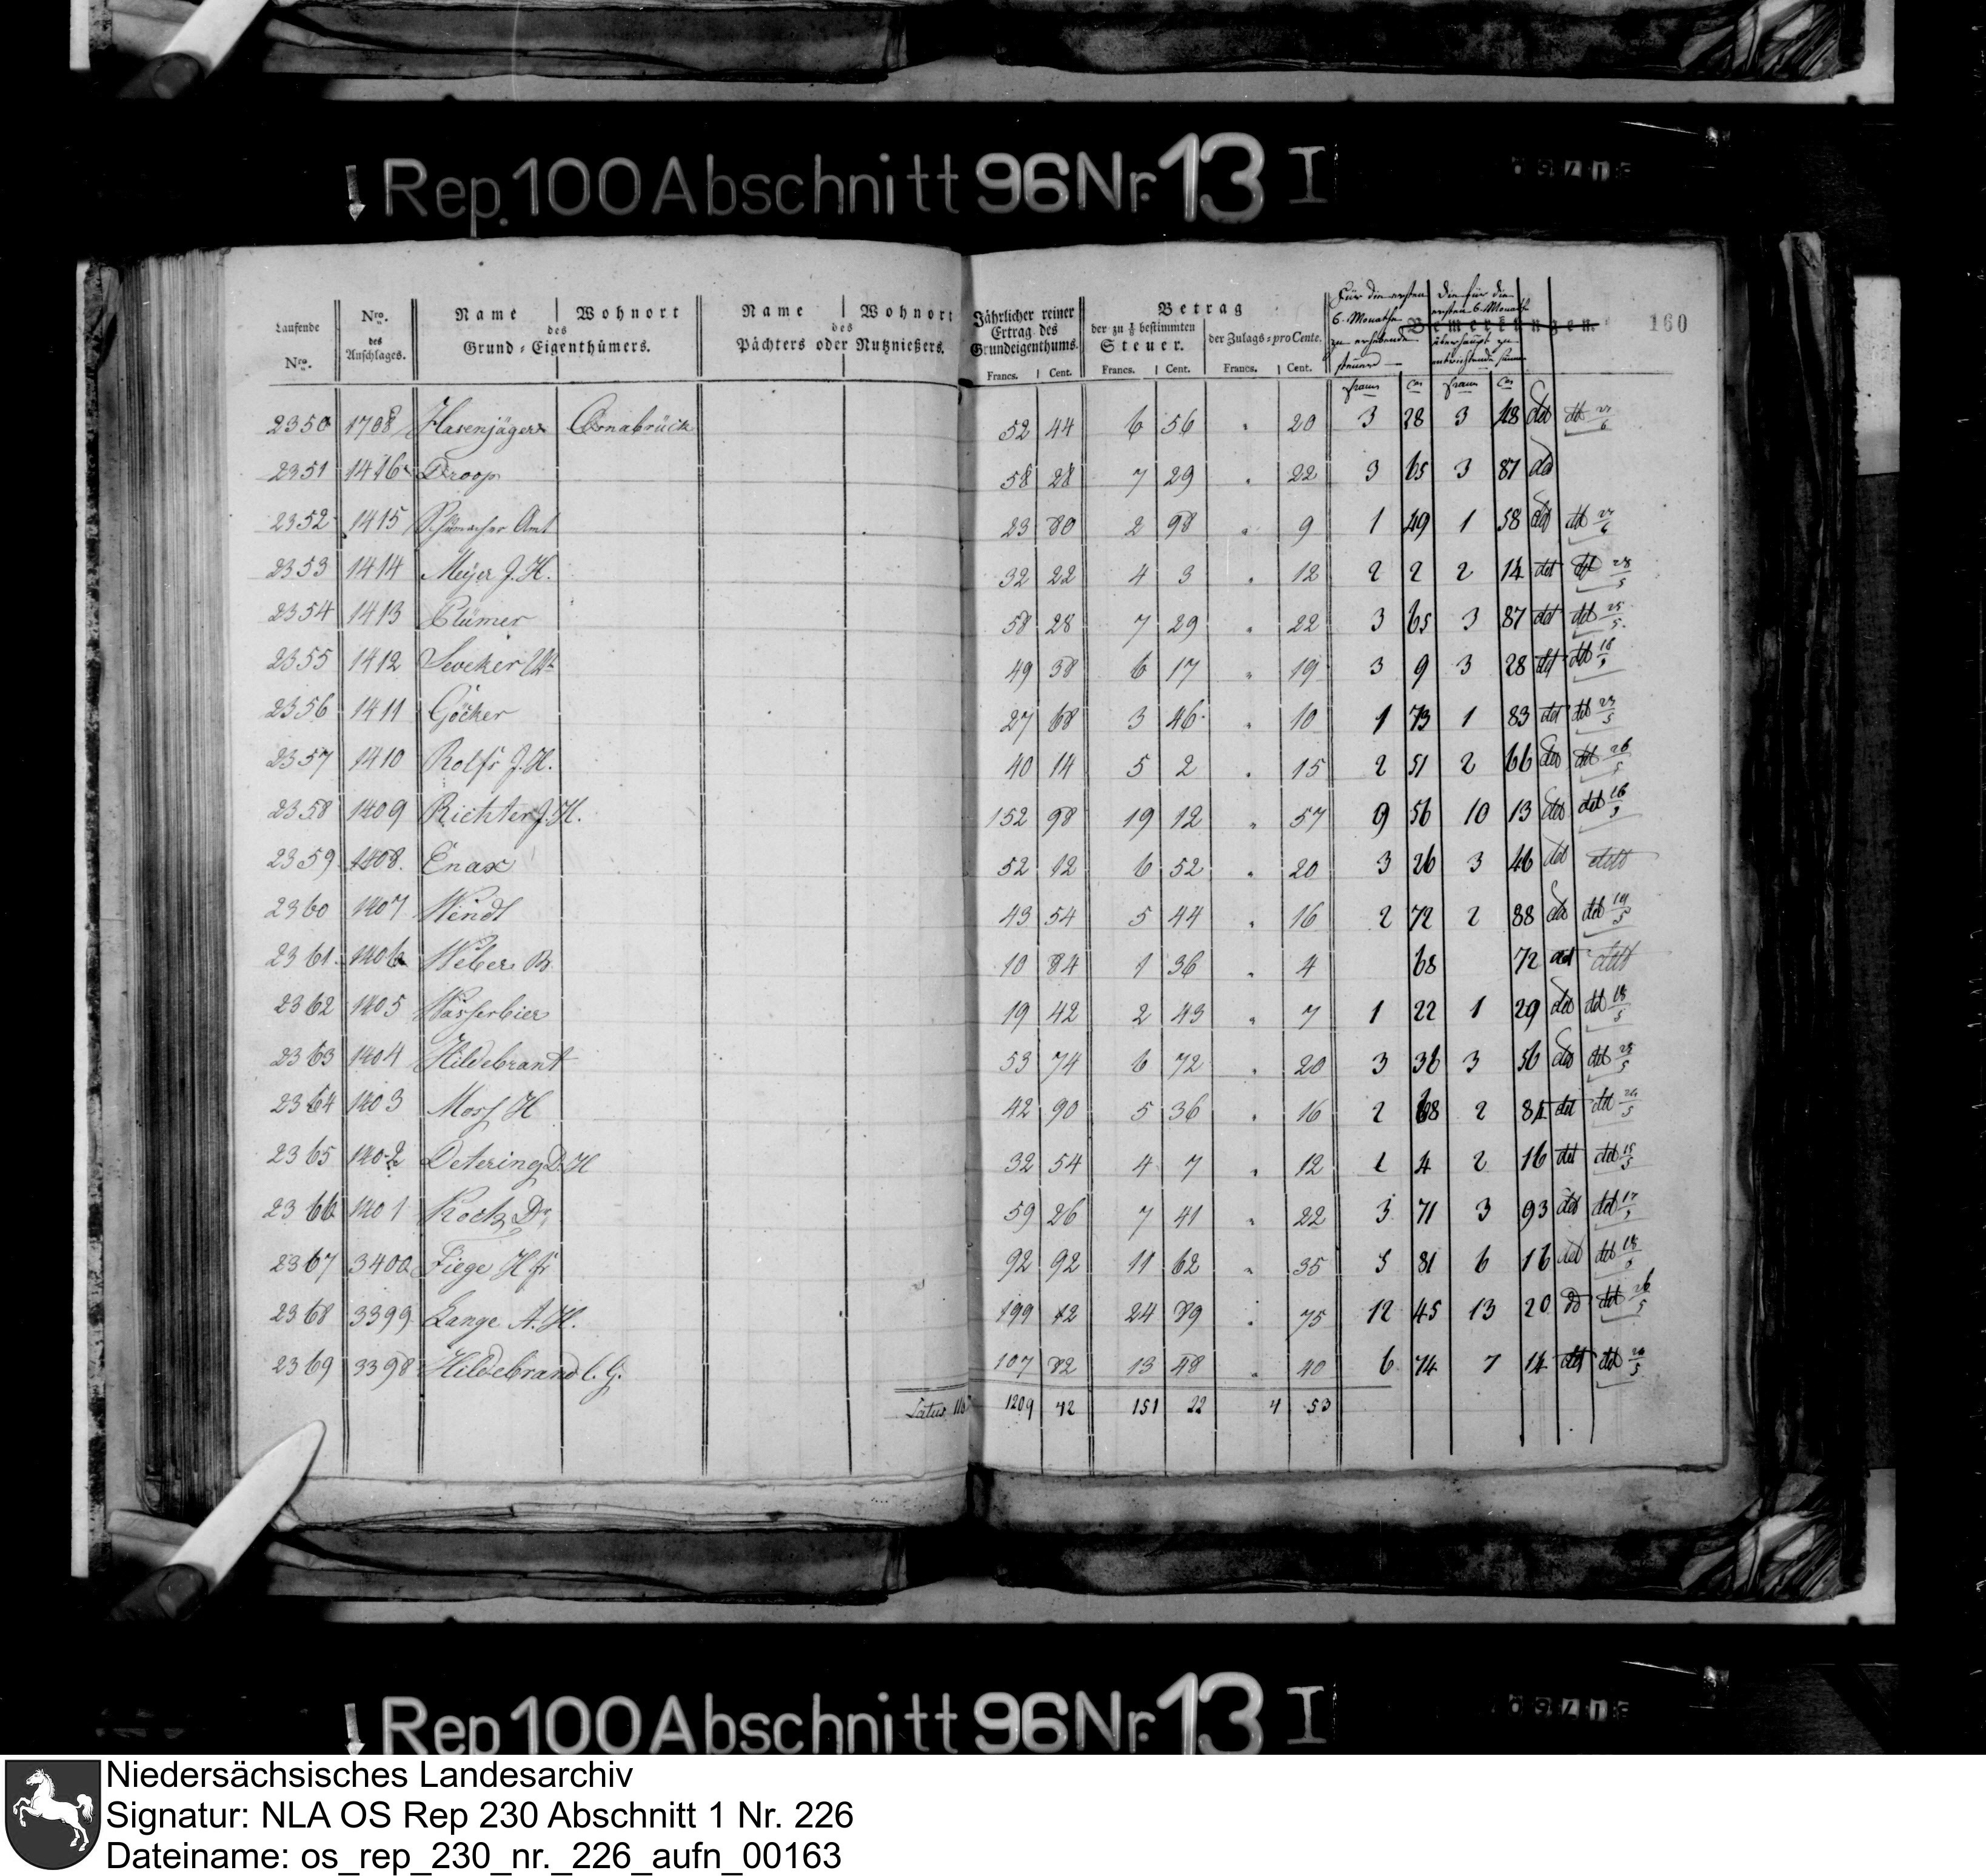 Rep. 100 Abschnitt 96 Nr. 13 I
160
Laufende Nro.
Nro. des Anschlages.
Name Wohnort
des
Grund-Eigenthümers.
Name Wohnort
des
Pächters oder Nutznießers.
Jährlicher reiner Ertrag des Grundeigenthums.
Francs. Cent.
Betrag
der zu ⅛ bestimmten Steuer.
Francs. Cent.
der Zulags-proCente.
Francs. Cent.
Für die ersten 6. Monathe zu erhebende Steuern
die für die ersten 6. Monath überhaupt zu entrichtende Summe
Bemerkungen.
2350 1708 Hasenjäger Osnabrück 52 44 6 56 " 20 3 28 3 48
2351 1416 Droop 58 28 7 29 " 22 3 65 3 87
2352 1415 Amt 23 80 2 98 " 9 1 49 1 58
2353 1414 Meyer J. H. 32 22 4 3 " 12 2 2 2 14
2354 1413 Clümer 58 28 7 29 " 22 3 65 3 87
2355 1412 Seveker 49 38 6 17 " 19 3 9 3 28
2356 1411 Göcker 27 68 3 46 " 10 1 73 1 83
2357 1410 Rolfs J. H. 40 14 5 2 " 15 2 51 2 66
2358 1409 Richter J. H. 152 98 19 12 " 57 9 56 10 13
2359 1408 Enax 52 12 6 52 " 20 3 26 3 46
2360 1407 Wendt 43 54 5 44 " 16 2 72 2 88
2361 1406 Weber B. 10 84 1 36 " 4 68 72
2362 1405 Wasserbier 19 42 2 43 " 7 1 22 1 29
2363 1404 Hildebrant 53 74 6 72 " 20 3 36 3 56
2364 1403 Mors H 42 90 5 36 " 16 2 68 2 84
2365 1402 Detering D. H 32 54 4 7 " 12 2 4 2 16
2366 1401 Kock Dr. 59 26 7 41 " 22 3 71 3 93
2367 3400 Fiege H fr 92 92 11 62 " 35 5 81 6 16
2368 3399 Lange A. H. 199 12 24 89 " 75 12 45 13 20
2369 3398 Hildebrand C. G. 107 82 13 48 " 40 6 74 7 14
Latus 1209 42 151 22 4 53
Rep. 100 Abschnitt 96 Nr. 13 I
Niedersächsisches Landesarchiv
Signatur: NLA OS Rep 230 Abschnitt 1 Nr. 226
Dateiname: os_rep_230_nr._226_aufn_00163